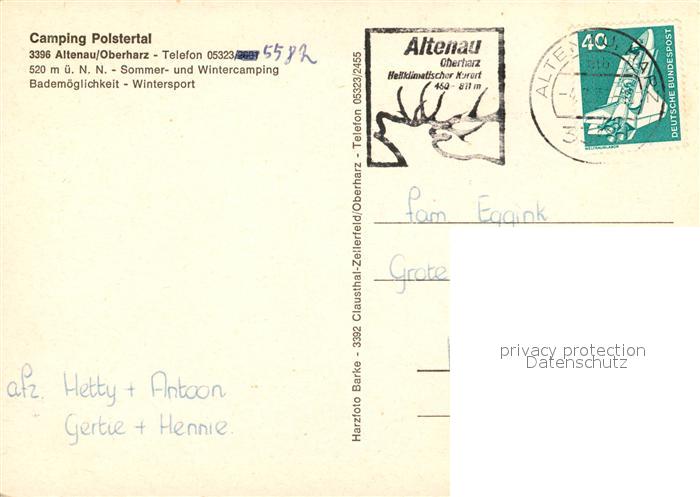 Camping Polstertal
3396 Altenau/Oberharz - Telefon 05323/ 5582
520 m ü. N. N. - Sommer- und Wintercamping
Bademöglichkeit - Wintersport
Altenau
Oberharz
Heilklimatischer Kurort
450 - 811 m
ALTENAU, HARZ
40
DEUTSCHE BUNDESPOST
WELTRAUMLABOR
Harzfoto Barke - 3392 Clausthal-Zellerfeld/Oberharz - Telefon 05323/2455
fam Eggink
Grote
afz. Hetty + Antoon
Gertie + Hennie.
privacy protection
Datenschutz